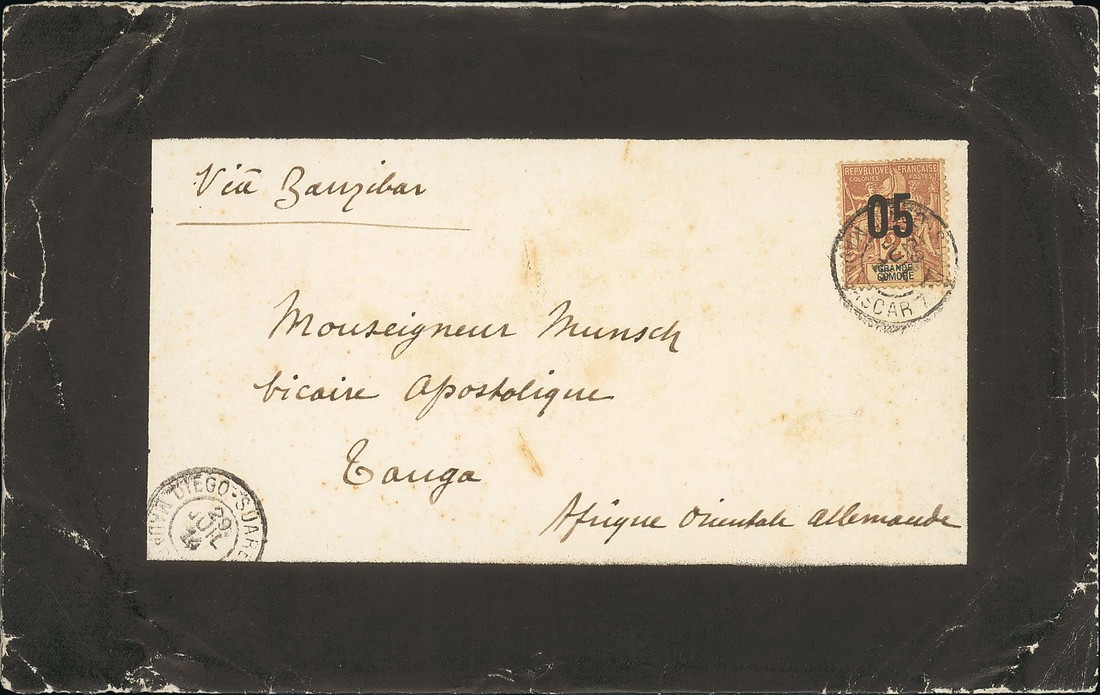 Viâ Zanzibar
REPVBLIQUE FRANÇAISE
COLONIES POSTES
05
GRANDE
COMORE
Monseigneur Munsch
Vicaire Apostolique
Tanga
Afrique Orientale Allemande
DIEGO-SUAREZ
29
JUIL